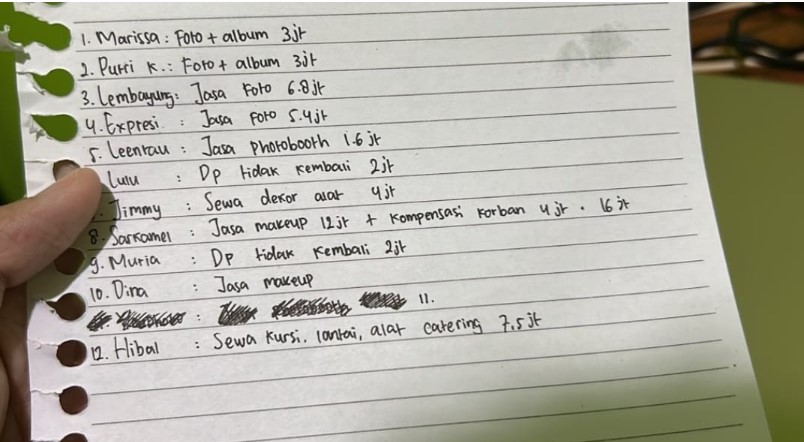 1. Marissa : Foto + album 3jt
2. Putri K. : Foto + album 3jt
3. Lembayung : Jasa Foto 6.8jt
4. Expresi : Jasa Foto 5.4jt
5. Leentau : Jasa photobooth 1.6 jt
Lulu : Dp tidak kembali 2jt
Jimmy : Sewa dekor alat 4jt
8. Sarkamel : Jasa makeup 12jt + kompensasi korban 4 jt . 16 jt
9. Muria : Dp tidak kembali 2jt
10. Dina : Jasa makeup
: 11.
12. Hibal : Sewa kursi, lantai, alat catering 7.5jt